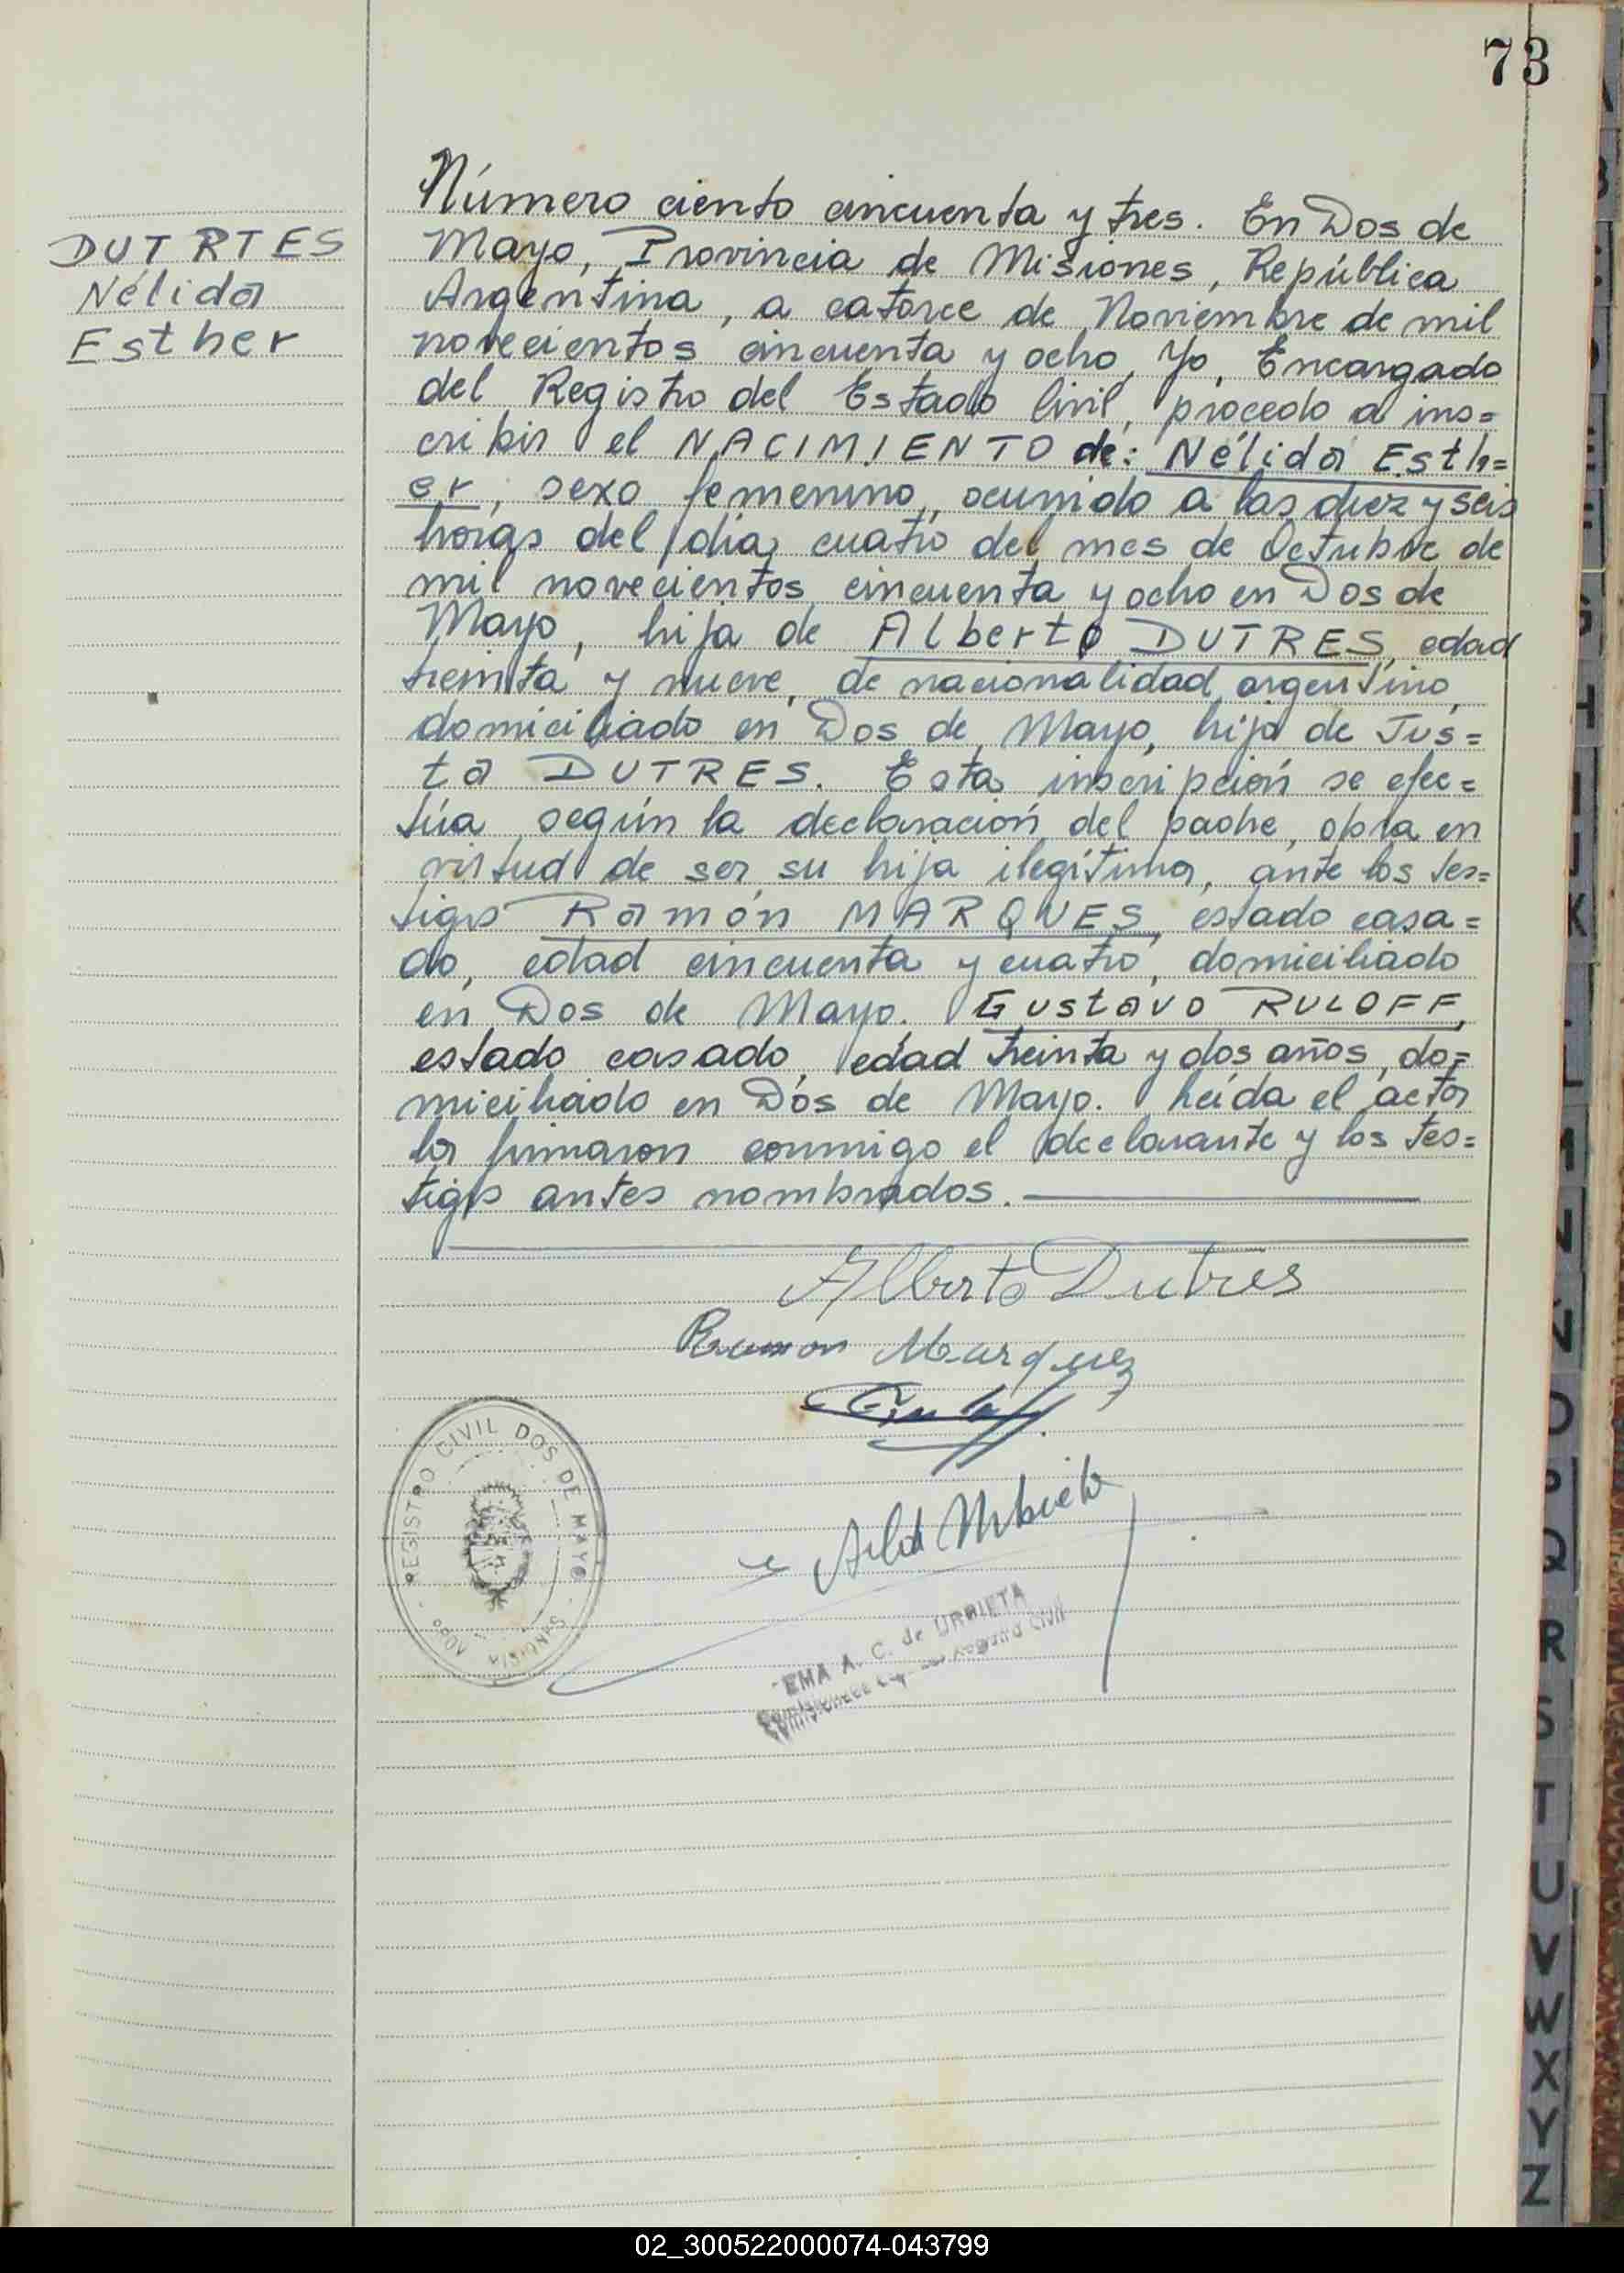 73
DUTRTES
Nélida
Esther
Número ciento cincuenta y tres. En Dos de
Mayo, Provincia de Misiones, República
Argentina, a catorce de Noviembre de mil
novecientos cincuenta y ocho, Yo, Encargado
del Registro del Estado Civil, procedo a ins=
cribir el NACIMIENTO de: Nélida Esth=
er, sexo femenino, ocurrido a las diez y seis
horas del día cuatro del mes de Octubre de
mil novecientos cincuenta y ocho en Dos de
Mayo, hija de Alberto DUTRES, edad
treinta y nueve, de nacionalidad argentino,
domiciliado en Dos de Mayo, hijo de Jus=
ta DUTRES. Esta inscripción se efec=
túa según la declaración del padre, obra en
virtud de ser su hija ilegítima, ante los tes=
tigos Ramón MARQUES, estado casa=
do, edad cincuenta y cuatro, domiciliado
en Dos de Mayo. Gustavo RULOFF,
estado casado, edad treinta y dos años, do=
miciliado en Dos de Mayo. Leída el acta
la firmaron conmigo el declarante y los tes=
tigos antes nombrados.
Alberto Dutres
Ramon Marquez
REGISTRO CIVIL DOS DE MAYO
EMA A. C. de URRIETA
Registro Civil
A
B
C
D
E
F
G
H
I
J
K
L
M
N
Ñ
O
P
Q
R
S
T
U
V
W
X
Y
Z
02_300522000074-043799